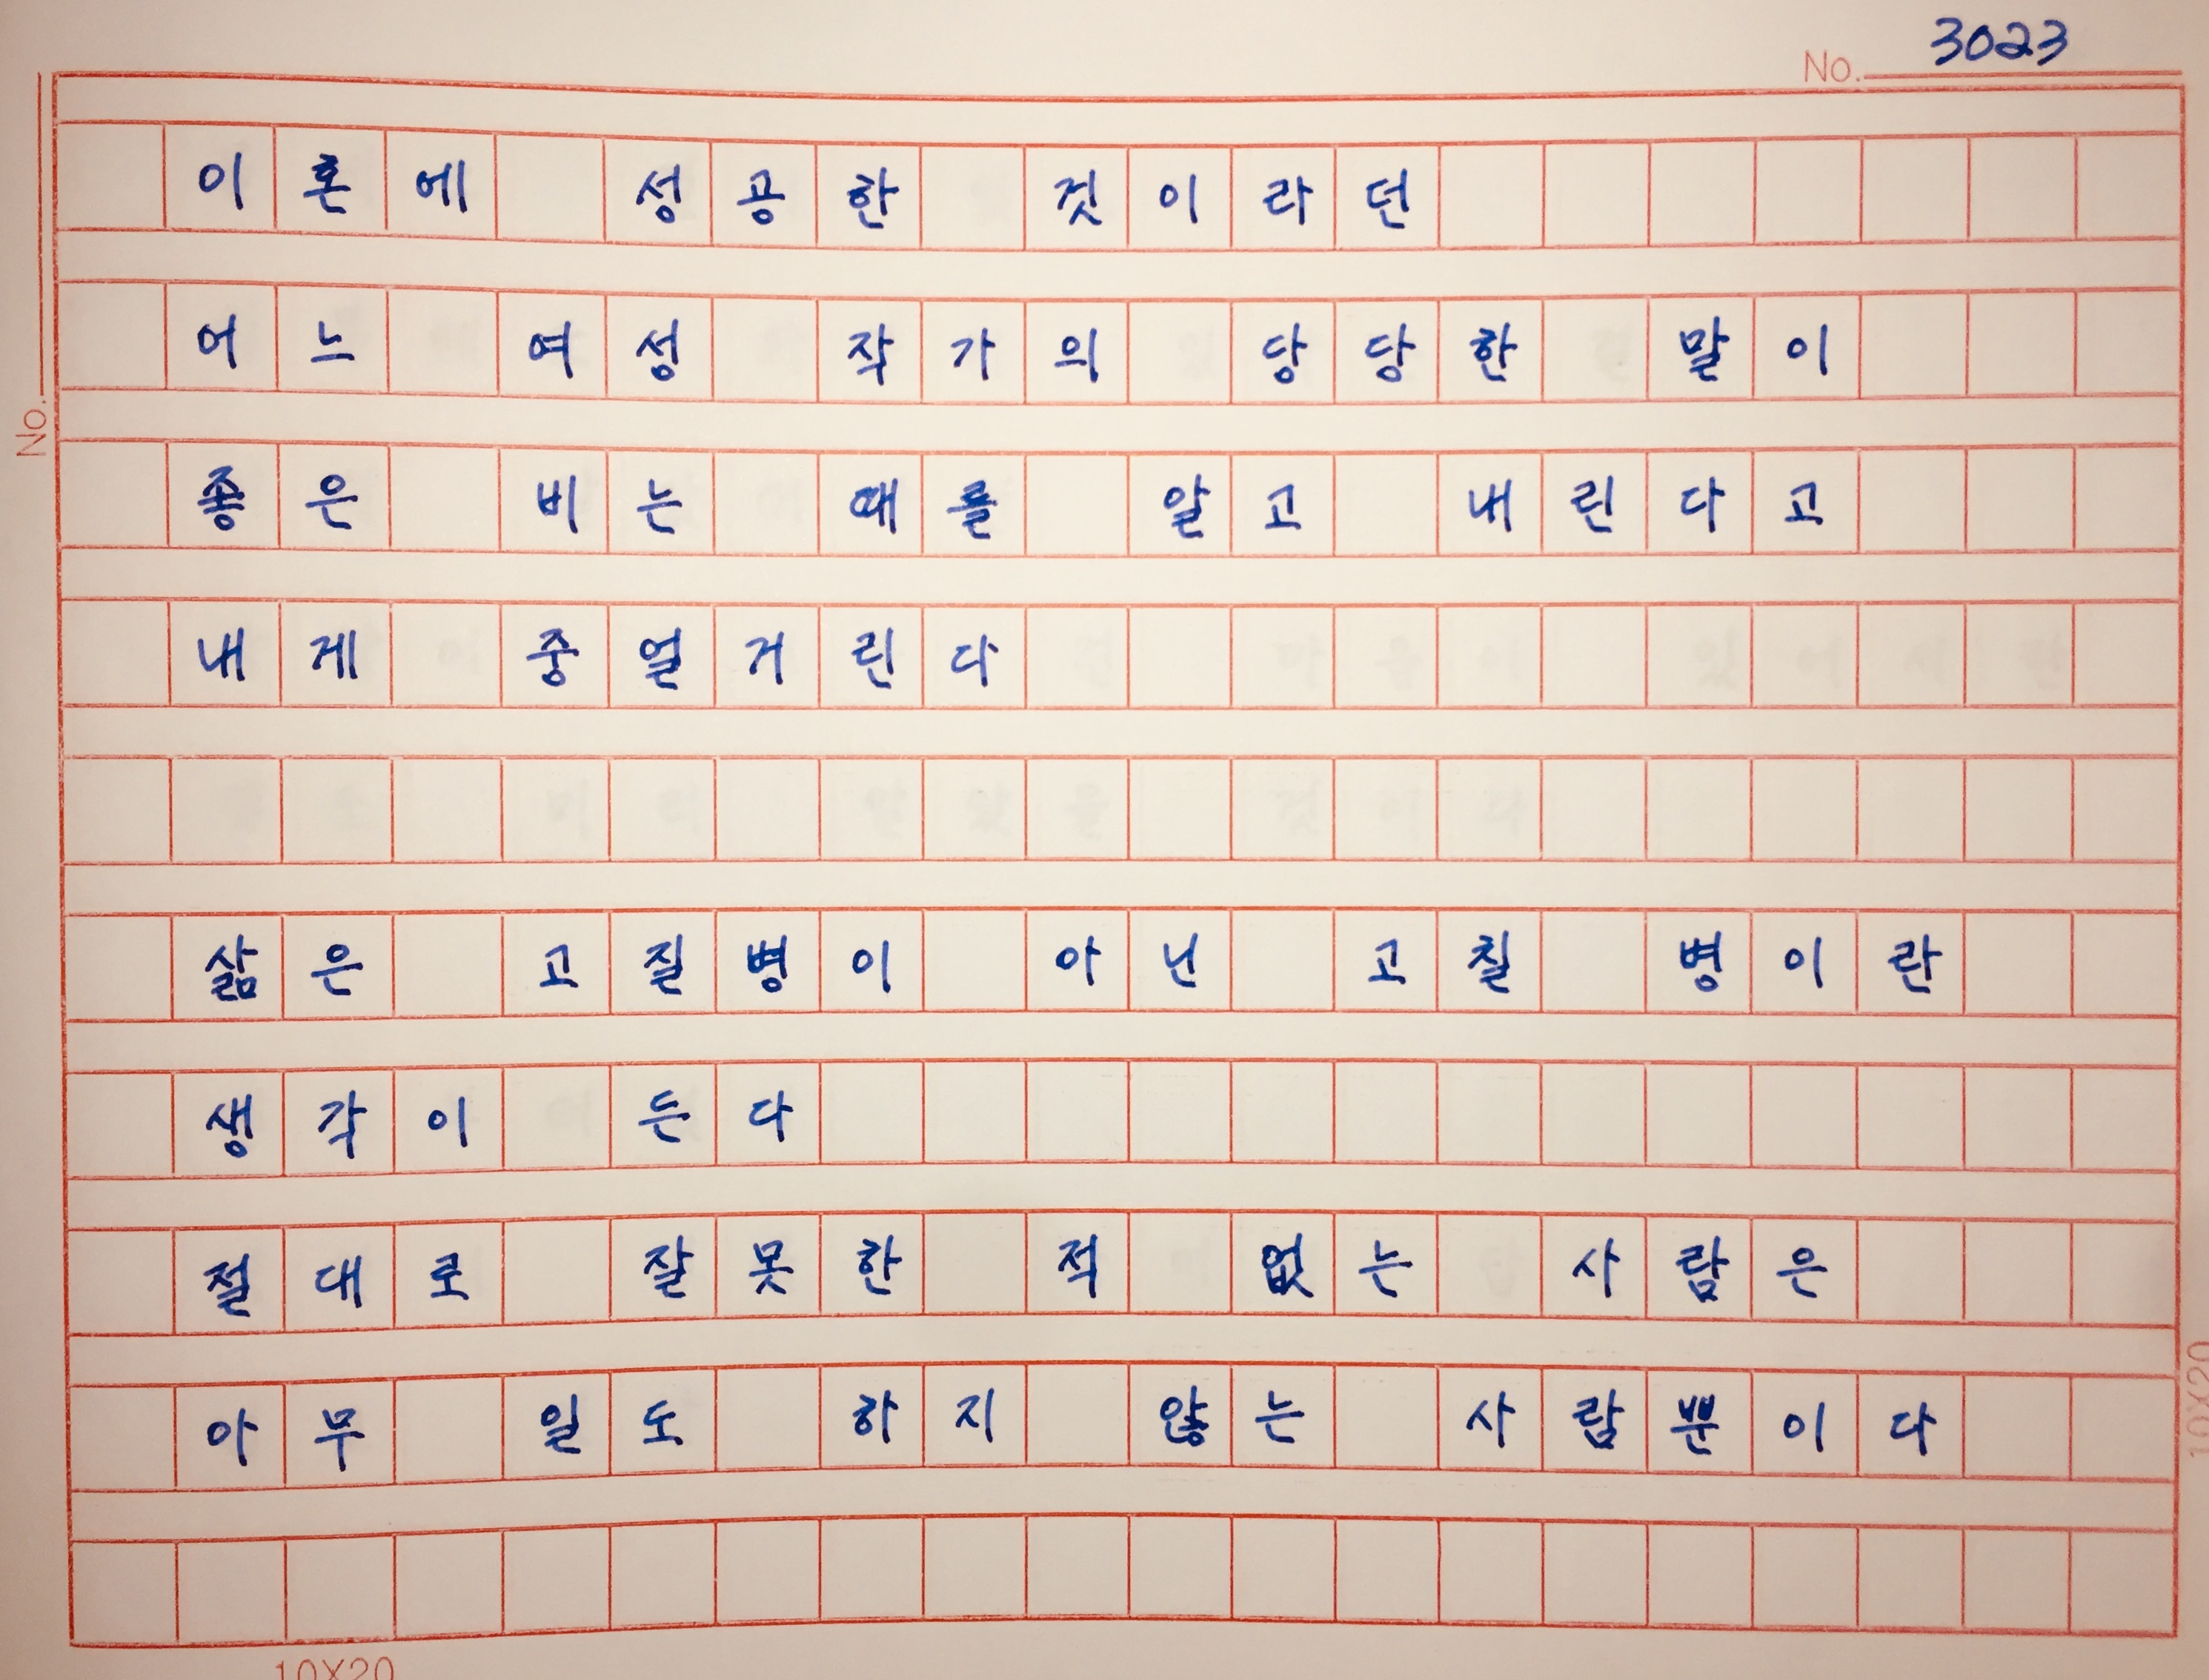 No. 3023
이혼에 성공한 것이라던
어느 여성 작가의 당당한 말이
No.
좋은 비는 때를 알고 내린다고
내게 중얼거린다
삶은 고질병이 아닌 고칠 병이란
생각이 든다
절대로 잘못한 적 없는 사람은
아무 일도 하지 않는 사람뿐이다
10X20
10X20